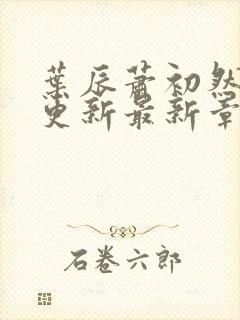 葉辰蕭初然
更新最新章
石卷六郎